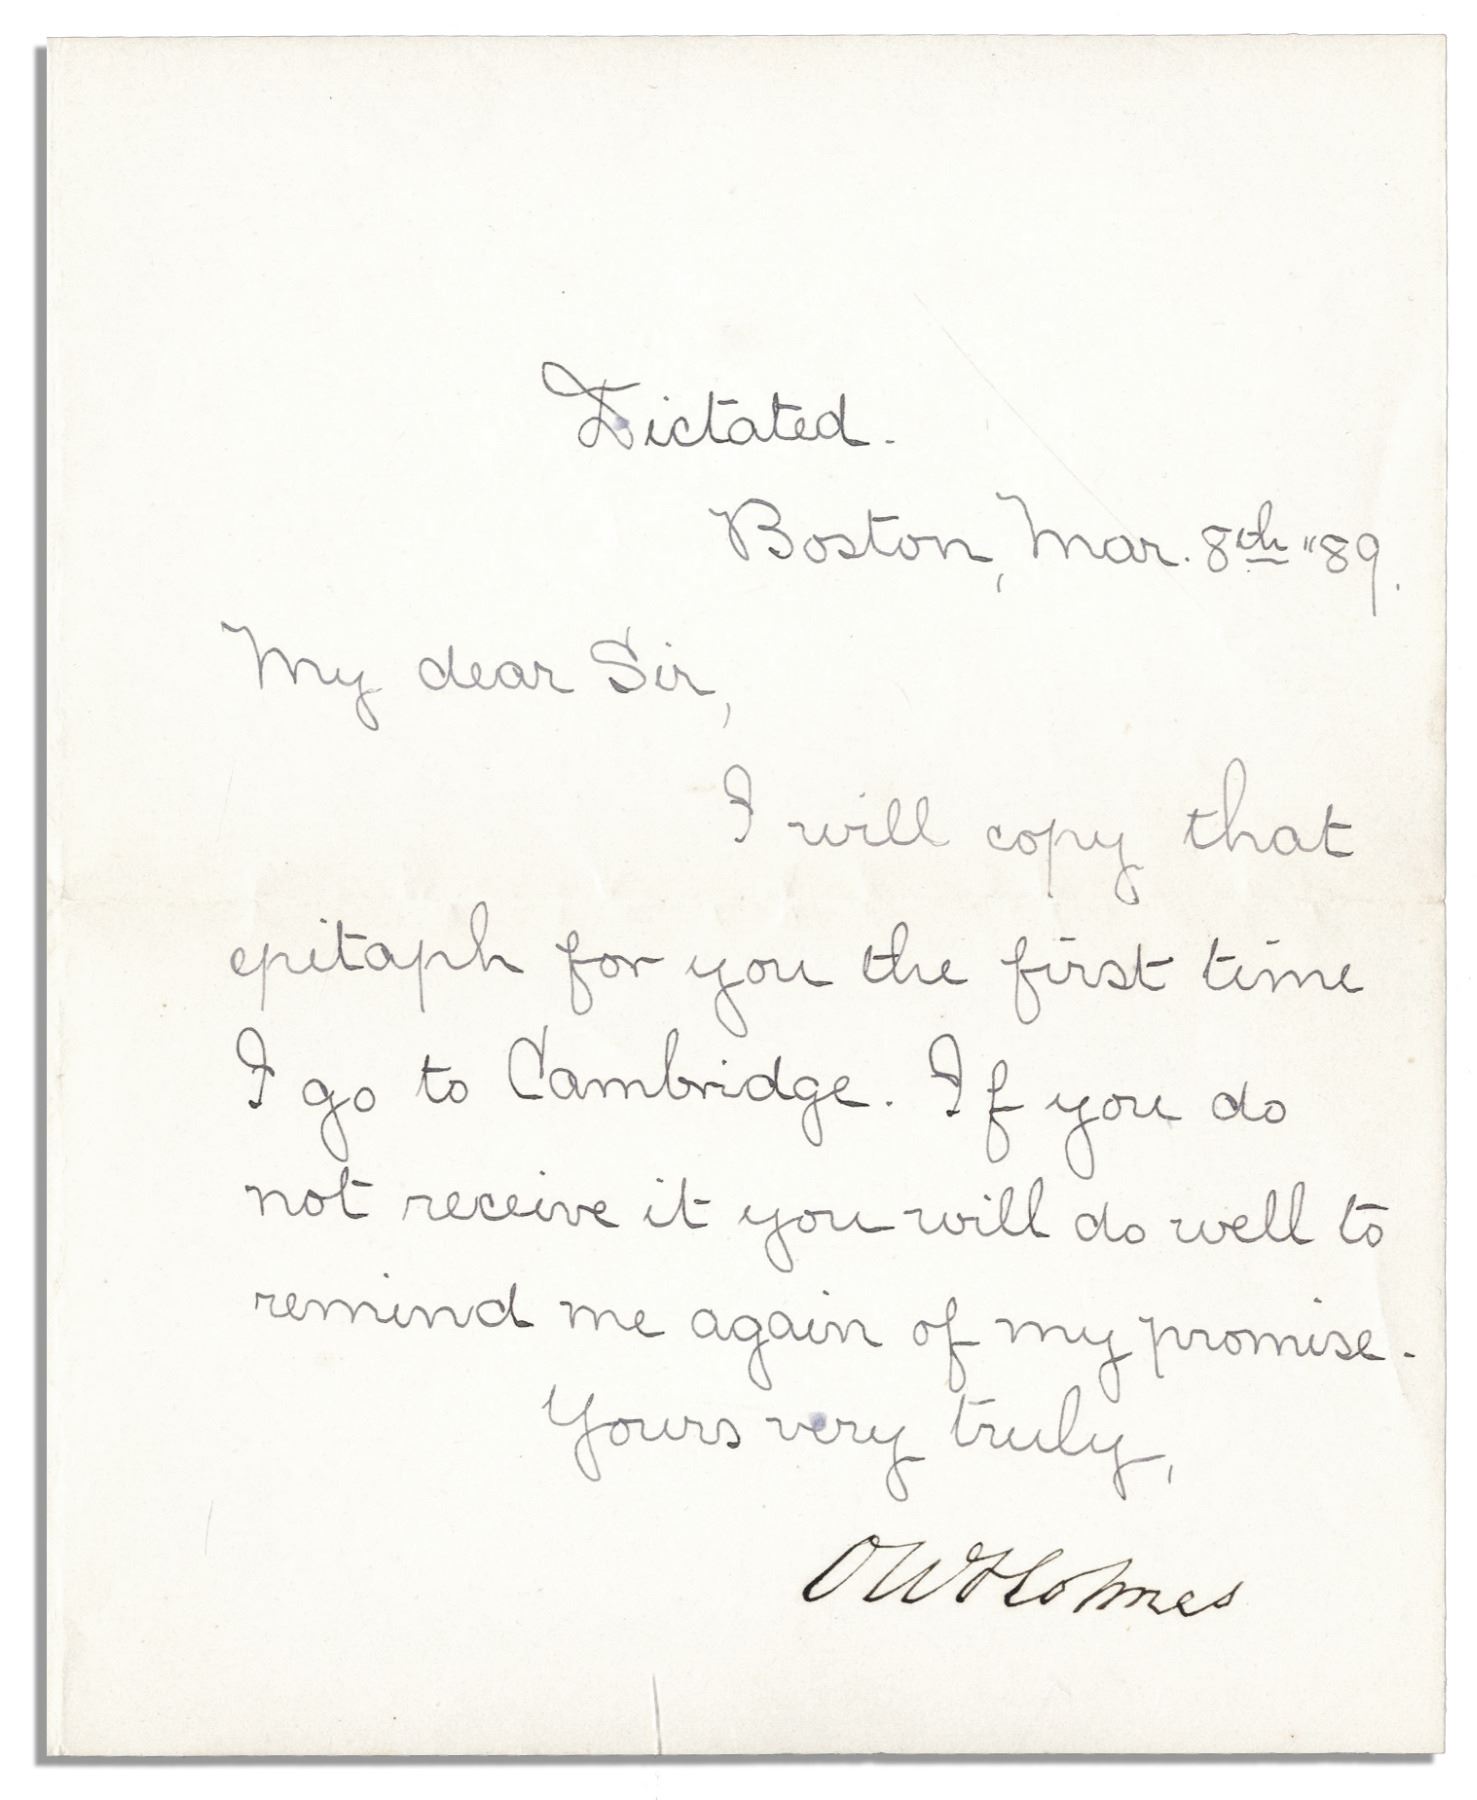 Dictated.
Boston, Mar. 8th "89.
My dear Sir,
I will copy that
epitaph for you the first time
I go to Cambridge. If you do
not receive it you will do well to
remind me again of my promise.
Yours very truly,
O W Holmes